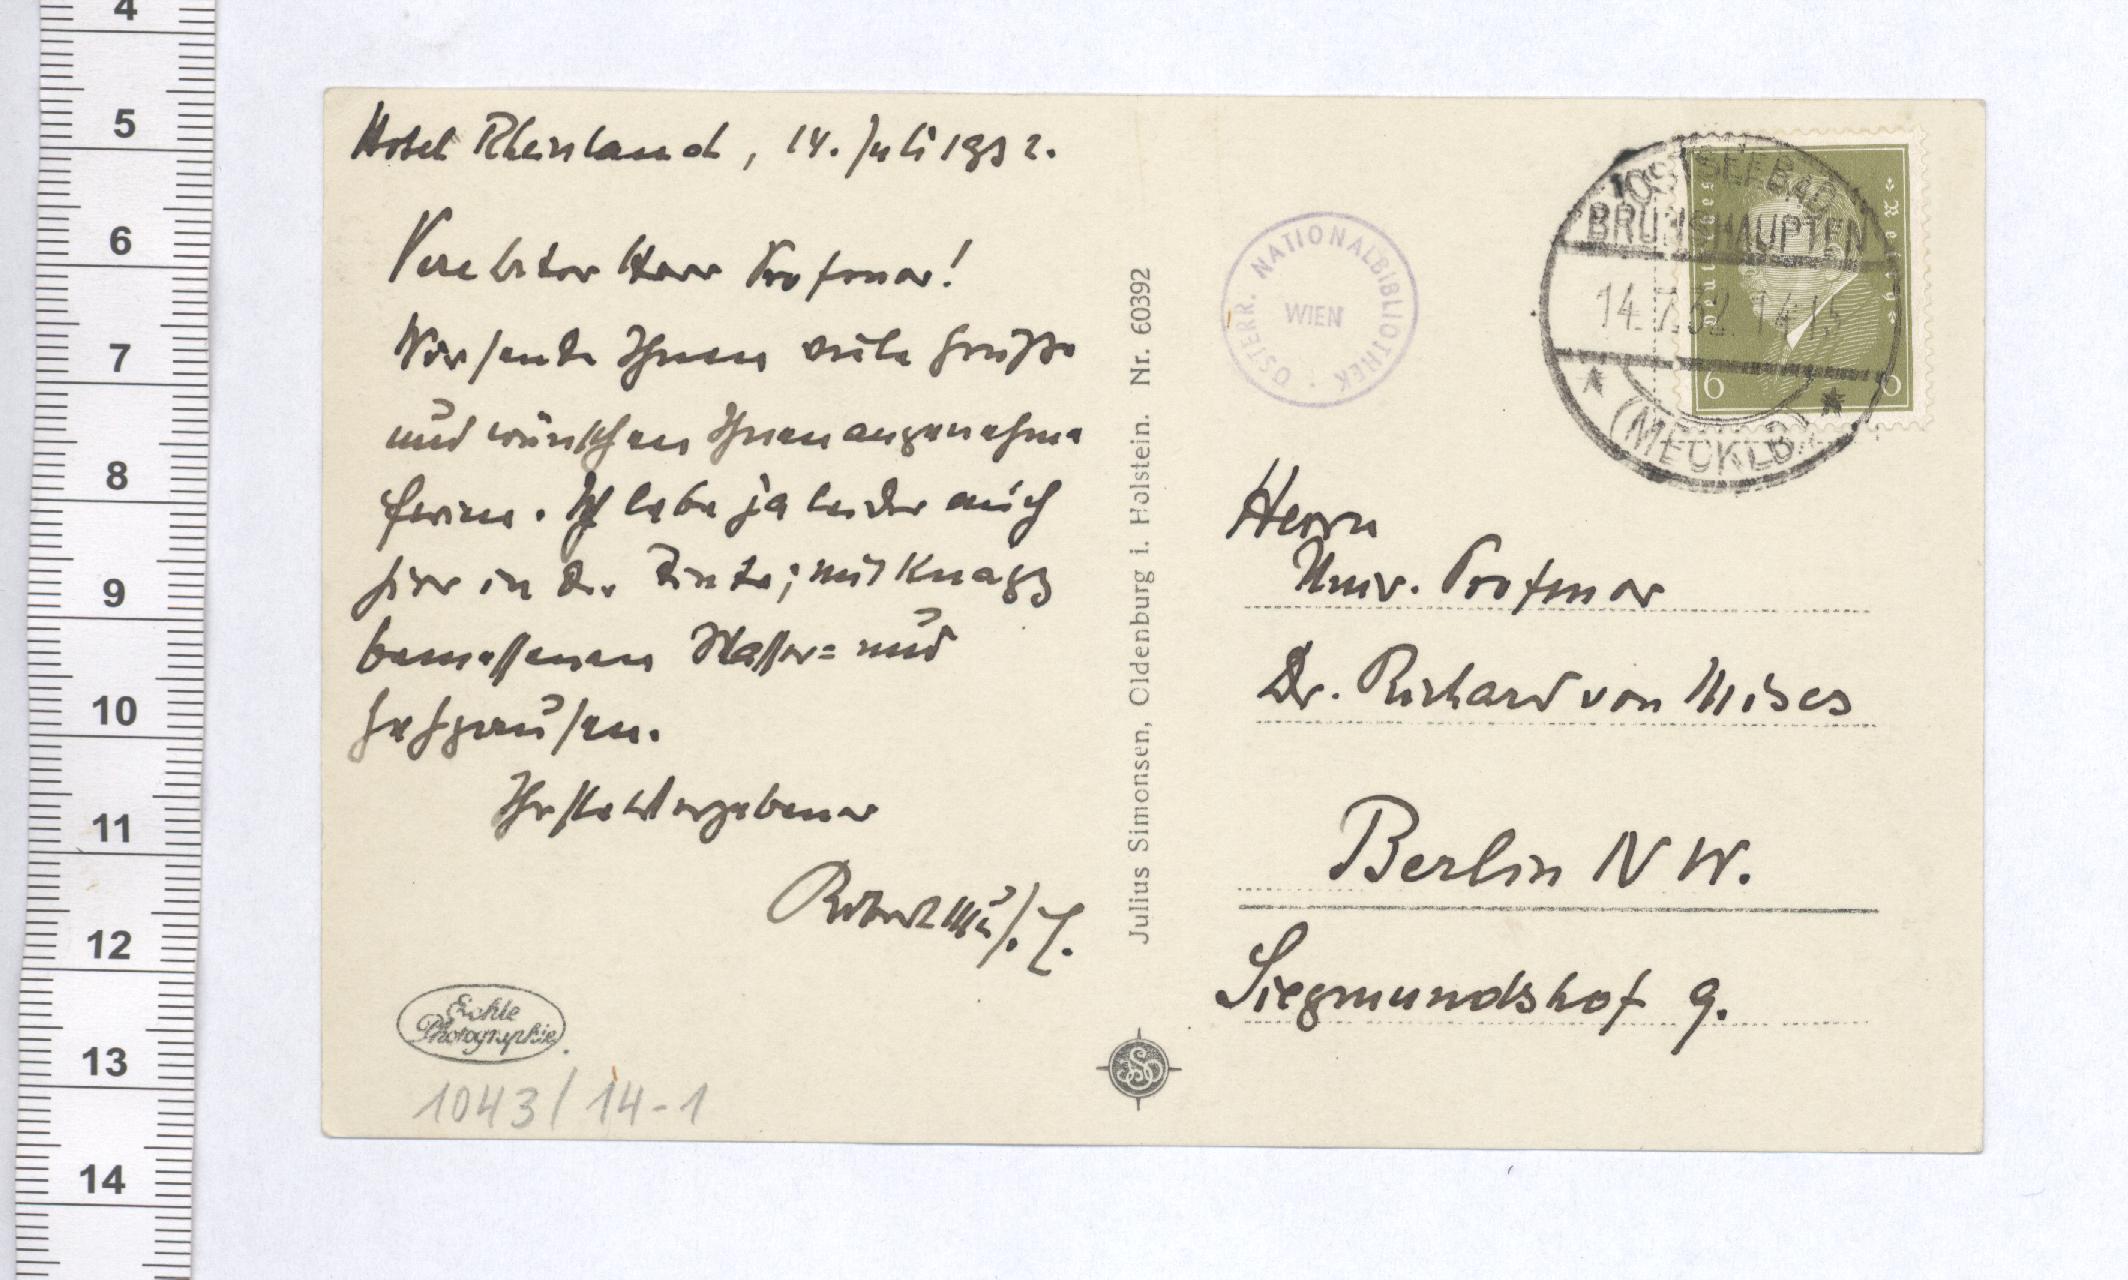 Hotel Rheinland, 14. Juli 1932.
Verehrter Herr Professor!
Wir senden Ihnen viele Grüße
und wünschen Ihnen angenehme
Ferien. Ich lebe ja leider auch
hier in der Tinte; mit knapp
bemessenen Wasser= und
Ihr stets ergebener
Robert Musil.
Echte
Photographie
1043/14-1
Julius Simonsen, Oldenburg i. Holstein. Nr. 60392
ÖSTERR. NATIONALBIBLIOTHEK
WIEN
OSTSEEBAD
BRUNSHAUPTEN
14.7.32. 14 15
(MECKLB.)
Deutsches Reich
6 6
Herrn
Univ. Professor
Dr. Richard von Mises
Berlin NW.
Siegmundshof 9.
4
5
6
7
8
9
10
11
12
13
14